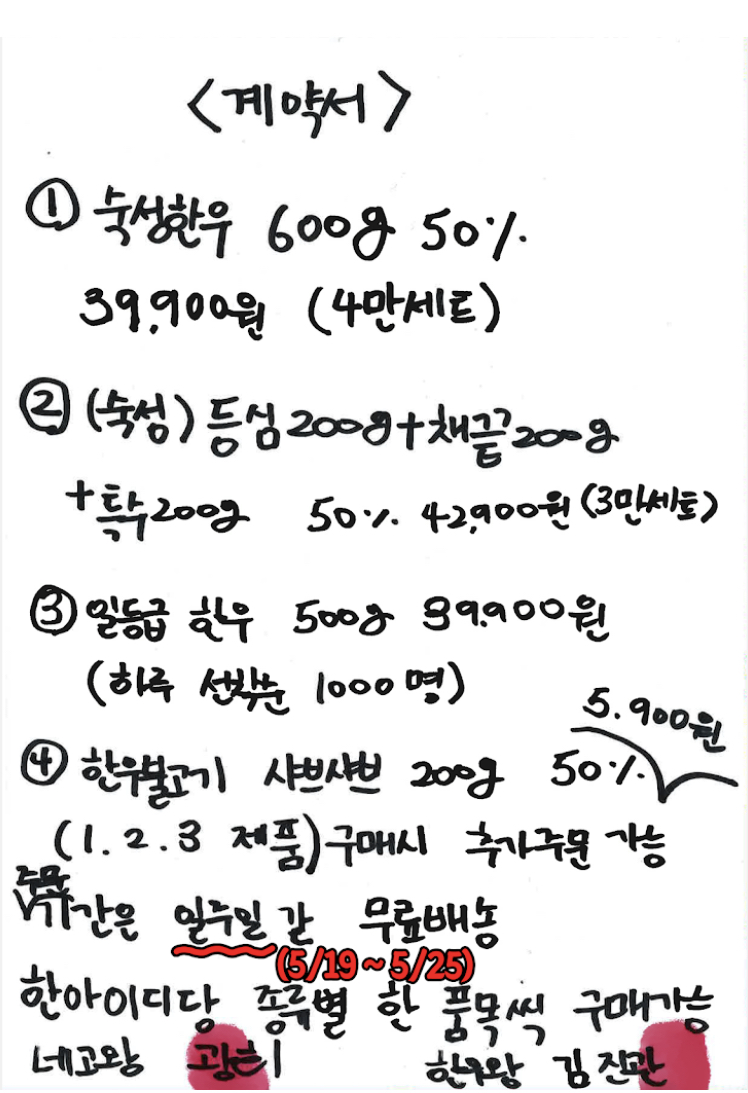 <계약서>
① 숙성한우 600g 50%
39,900원 (4만세트)
② (숙성) 등심 200g+채끝 200g
+특수 200g 50% 42,900원 (3만세트)
③ 일등급 한우 500g 39,900원
(하루 선착순 1000명)
5,900원
④ 한우불고기 샤브샤브 200g 50%
(1. 2. 3 제품) 구매시 추가주문 가능
주문
기간은 일주일 간 무료배송
(5/19~5/25)
한아이디당 종류별 한 품목씩 구매가능
네고왕 광희 한우왕 김진관